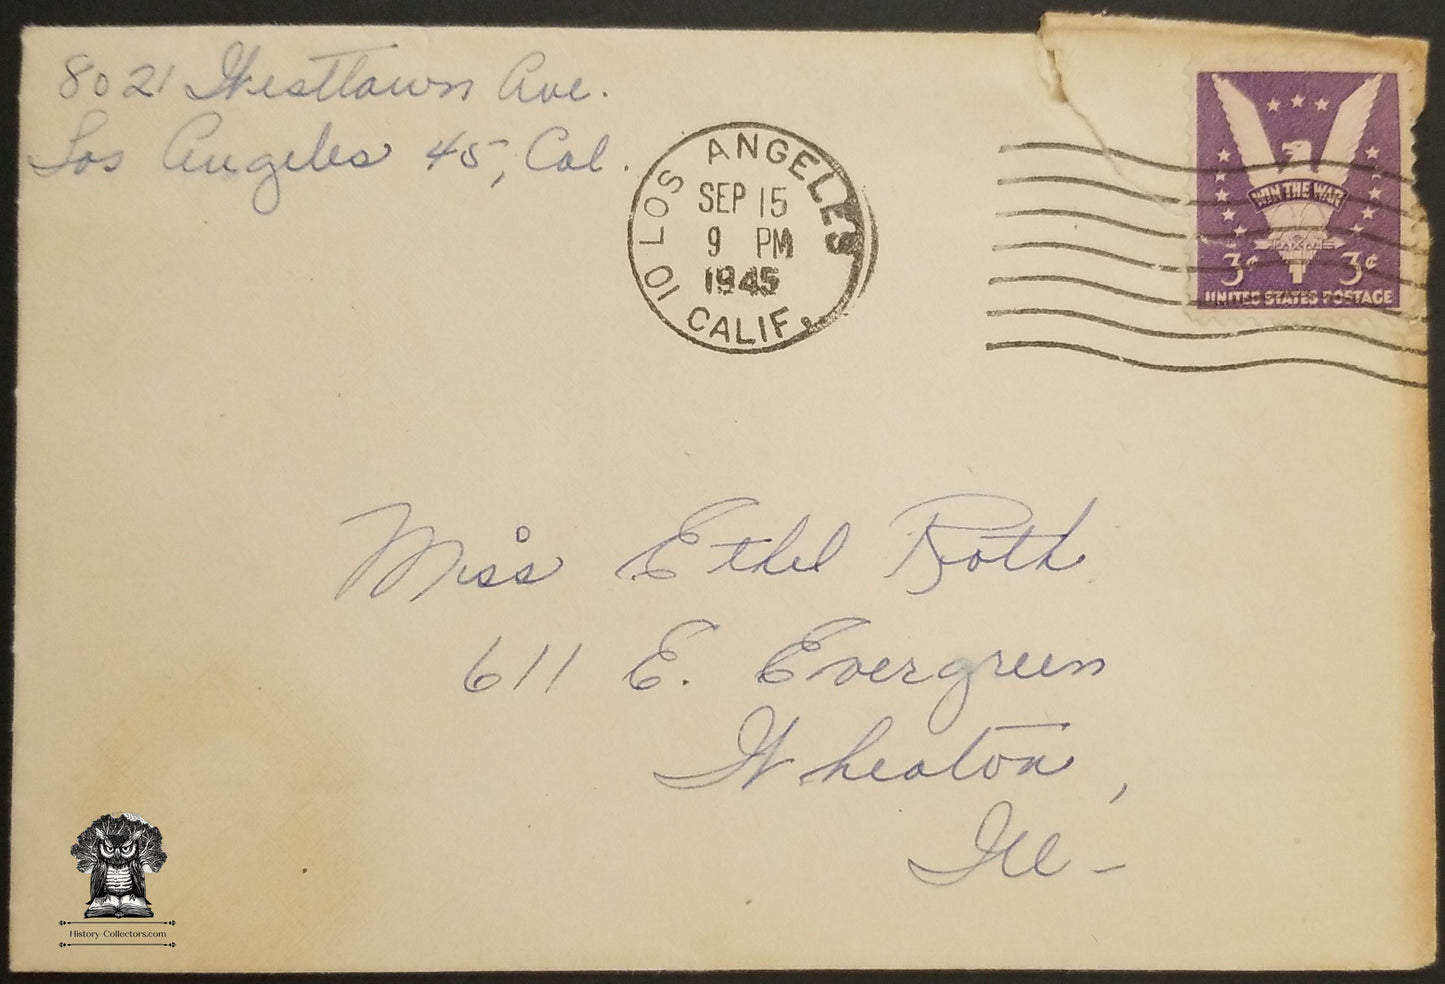 8021 Westlawn Ave.
Los Angeles 45, Cal.
LOS ANGELES
SEP 15
9 PM
1945
10 CALIF.
WIN THE WAR
3¢ 3¢
UNITED STATES POSTAGE
Miss Ethel Roth
611 E. Evergreen
Wheaton,
Ill-
History-Collectors.com